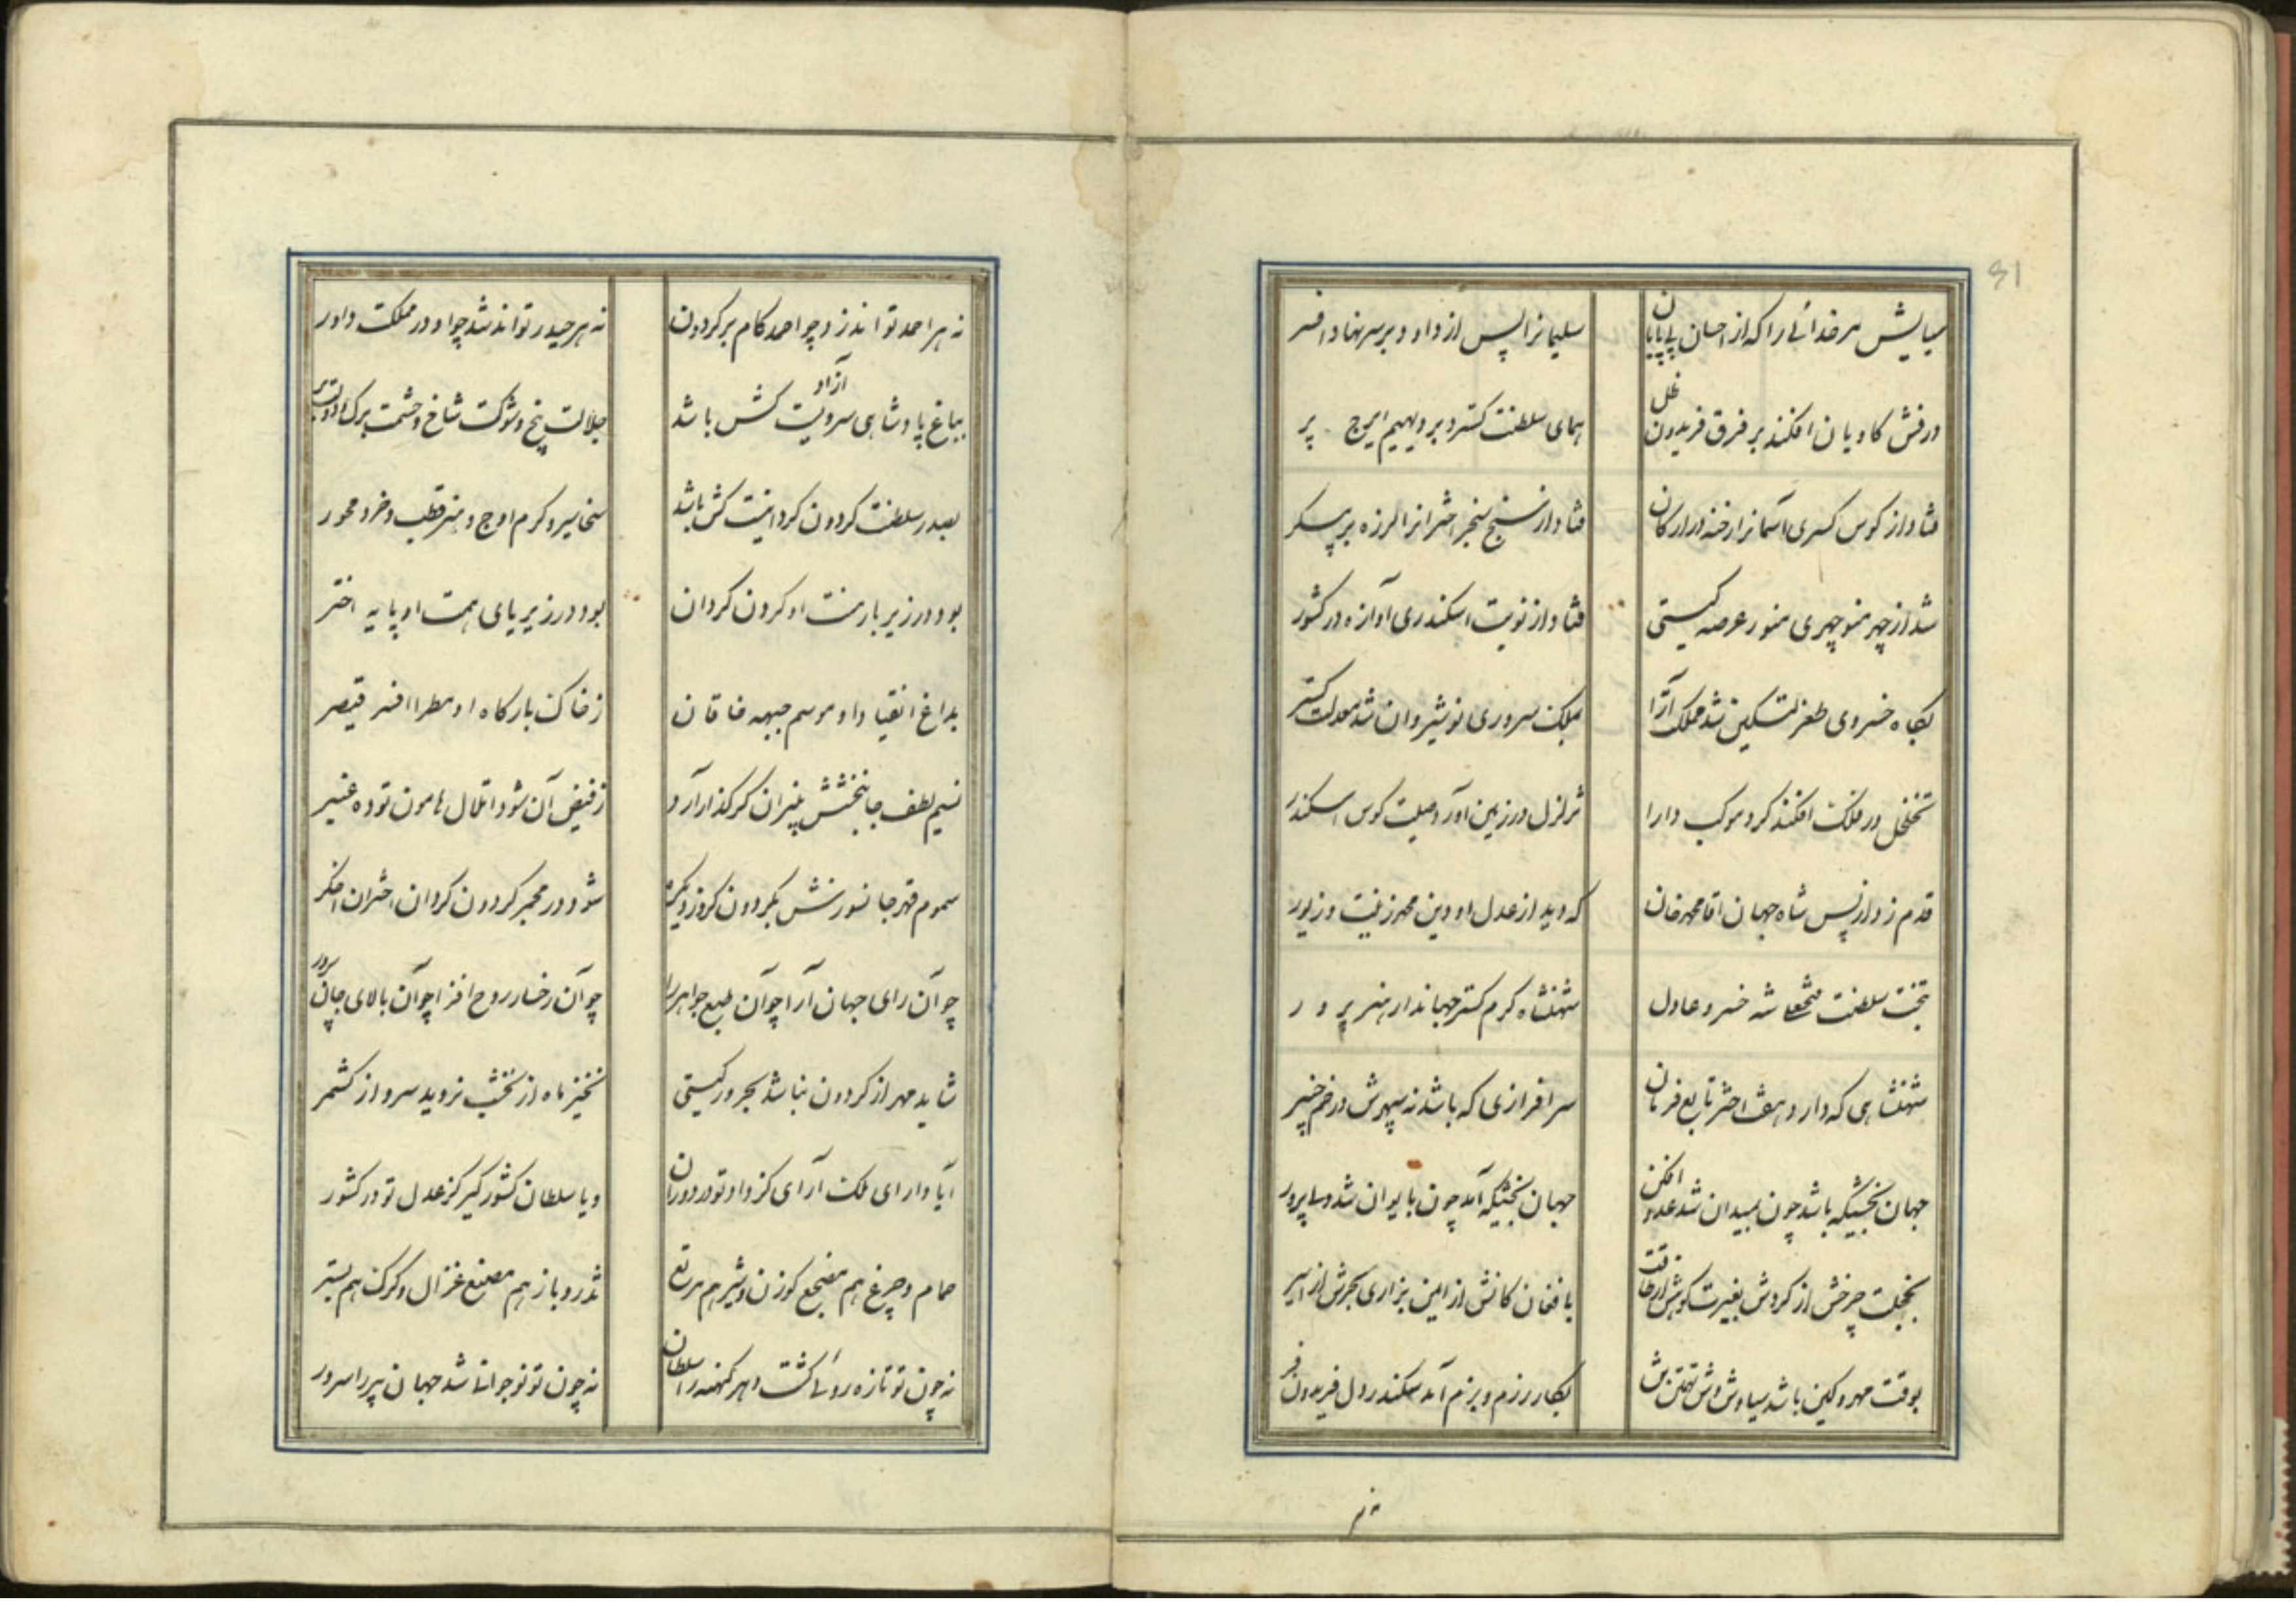 51
ستایش مر خدائی را که از احسان بی پایان
سلیمانرا پس از داود بر سر نهاد افسر
درفش کاویان افکند بر فرق فریدون ظل
همای سلطنت گسترد بر دیهیم ایرج پر
فتاد از کوس کسری آسمانرا رخنه در ارکان
فتاد از سنج سنجر اخترانرا لرزه بر پیکر
شد از چهر منوچهری منور عرصه گیتی
فتاد از نوبت اسکندری آوازه در کشور
بگاه خسروی طغرلتکین شد مملکت آرا
بملک سروری نوشیروان شد معدلت گستر
تخلخل در فلک افکند گرد موکب دارا
تزلزل در زمین آورد صیت کوس اسکندر
قدم زد از پس شاه جهان اقا محمد خان
که دید از عدل او دین محمد زینت و زیور
بتخت سلطنت فتحعلی شه خسرو عادل
شهنشاه کرم گستر جهاندار هنر پرور
شهنشاهی که دارد هفت اختر تابع فرمان
سرافرازی که باشد نه سپهرش در خم چنبر
جهان بخشیکه باشد چون بمیدان شد عدو افکن
جهان بخشیکه آمد چون بایوان شد ولی پرور
بخجلت چرخش از گردش بغیرت کوهش از طاقت
بافغان کانش از ایمن بزاری بحرش از ایسر
بوقت مهر و کین باشد سیاوش وش تهمتن تن
بگاه رزم و بزم آمد سکندر دل فریدون فر
نه هر
نه هر احمد تواند زد چو احمد گام بر گردون
نه هر حیدر تواند شد چو او در مملکت داور
بباغ پادشاهی سرویست آزاد کش باشد
جلالت بیخ و شوکت شاخ و حشمت برگ و دولت بر
بصدر سلطنت گردون گردانیست کش باشد
سخا سیر و کرم اوج و هنر قطب و خرد محور
بود در زیر بار منت او گردن گردان
بود در زیر پای همت او پایه اختر
بداغ انقیاد او موسم جبهه خاقان
ز خاک بارگاه او مطرا افسر قیصر
نسیم لطف جانبخشش بنیران گر گذار آرد
ز فیض آن شود اتلال هامون توده عنبر
سموم قهر جانسوزش بگردون گر وزد یکره
شود در مجمر گردون گردان اختران اخگر
چو آن رای جهان آرا چو آن طبع جواهر زا
چو آن رخسار روح افزا چو آن بالای جان پرور
نتابد مهر از گردون نباشد بحر در گیتی
نخیزد ماه از نخشب نروید سرو از کشمر
ایا دارای ملک آرای کز داد تو در دوران
و یا سلطان کشورگیر کز عدل تو در کشور
حمام و چرغ هم مضجع گوزن و شیر هم مرتع
تذرو و باز هم مصنع غزال و گرگ هم بستر
نه چون تو تازه روئی گشت دهر کهنه را سلطان
نه چون تو نوجوانی شد جهان پیر را سرور